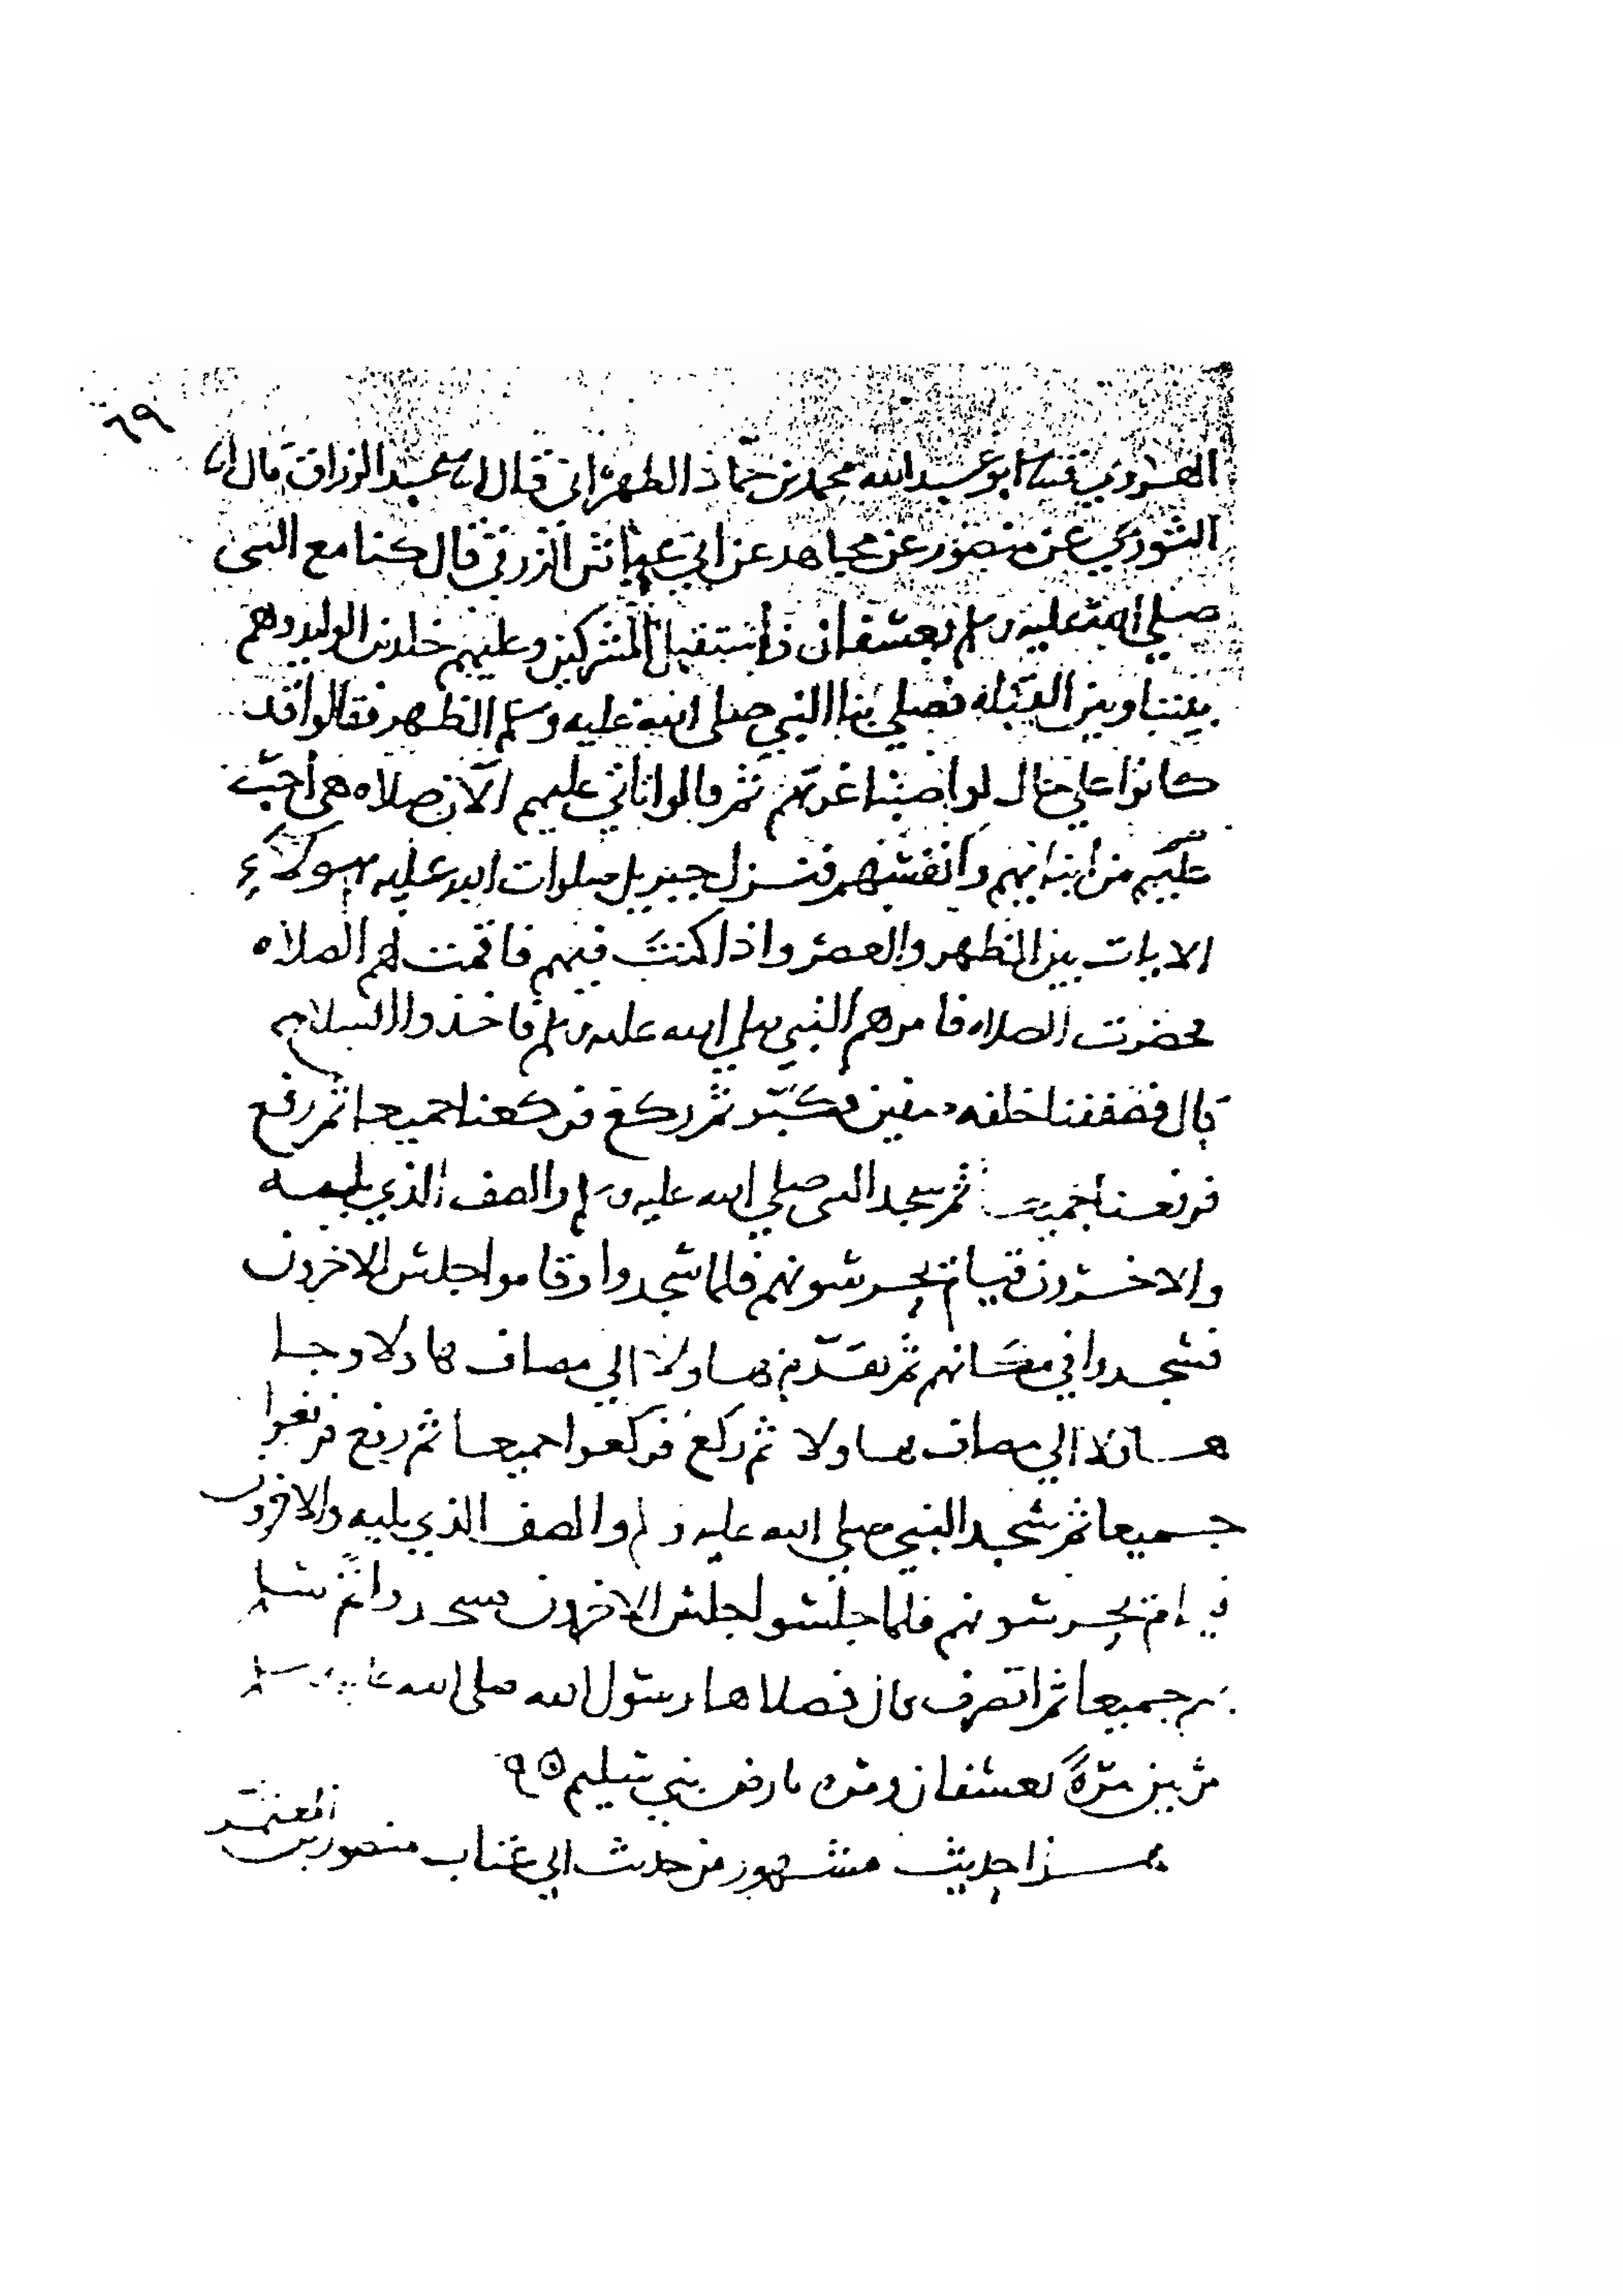 ٦٩
ثنا ابو عبد الله محمد بن حماد الطهراني قال انا عبد الرزاق قال انا
الثوري عن منصور عن مجاهد عن ابي عياش الزرقي قال كنا مع النبي
صلى الله عليه وسلم بعسفان فاستقبل المشركين وعليهم خالد بن الوليد وهم
بيننا وبين القبلة فصلى بنا النبي صلى الله عليه وسلم الظهر فقالوا قد
كانوا على حال لو اصبنا غرتهم ثم قالوا تاتي عليهم الآن صلاه هي احب
عليهم من ابنائهم وانفسهم فنزل جبريل صلوات الله عليه بهولاء
الايات بين الظهر والعصر واذا كنت فيهم فاقمت لهم الصلاه
فحضرت الصلاه فامرهم النبي صلى الله عليه وسلم فاخذوا السلاح
قال فصففنا خلفه صفين فكبر ثم ركع فركعنا جميعا ثم رفع
فرفعنا جميعا ثم سجد النبي صلى الله عليه وسلم والصف الذي يليه
والاخرون قيام يحرسونهم فلما سجدوا وقاموا جلس الاخرون
فسجدوا في مكانهم ثم تقدم هاولا الى مصاف هاولا وجا
هاولا الى مصاف هاولا ثم ركع فركعوا جميعا ثم رفع فرفعوا
جميعا ثم سجد النبي صلى الله عليه وسلم والصف الذي يليه والاخرون
قيام يحرسونهم فلما جلسوا جلس الاخرون فسجدوا ثم سلم
جميعا ثم انصرف قال فصلاها رسول الله صلى الله عليه وسلم
مرتين مرة بعسفان ومره بارض بني سليم ٩٥
هذا حديث مشهور من حديث ابي عتاب منصور بن المعتمر